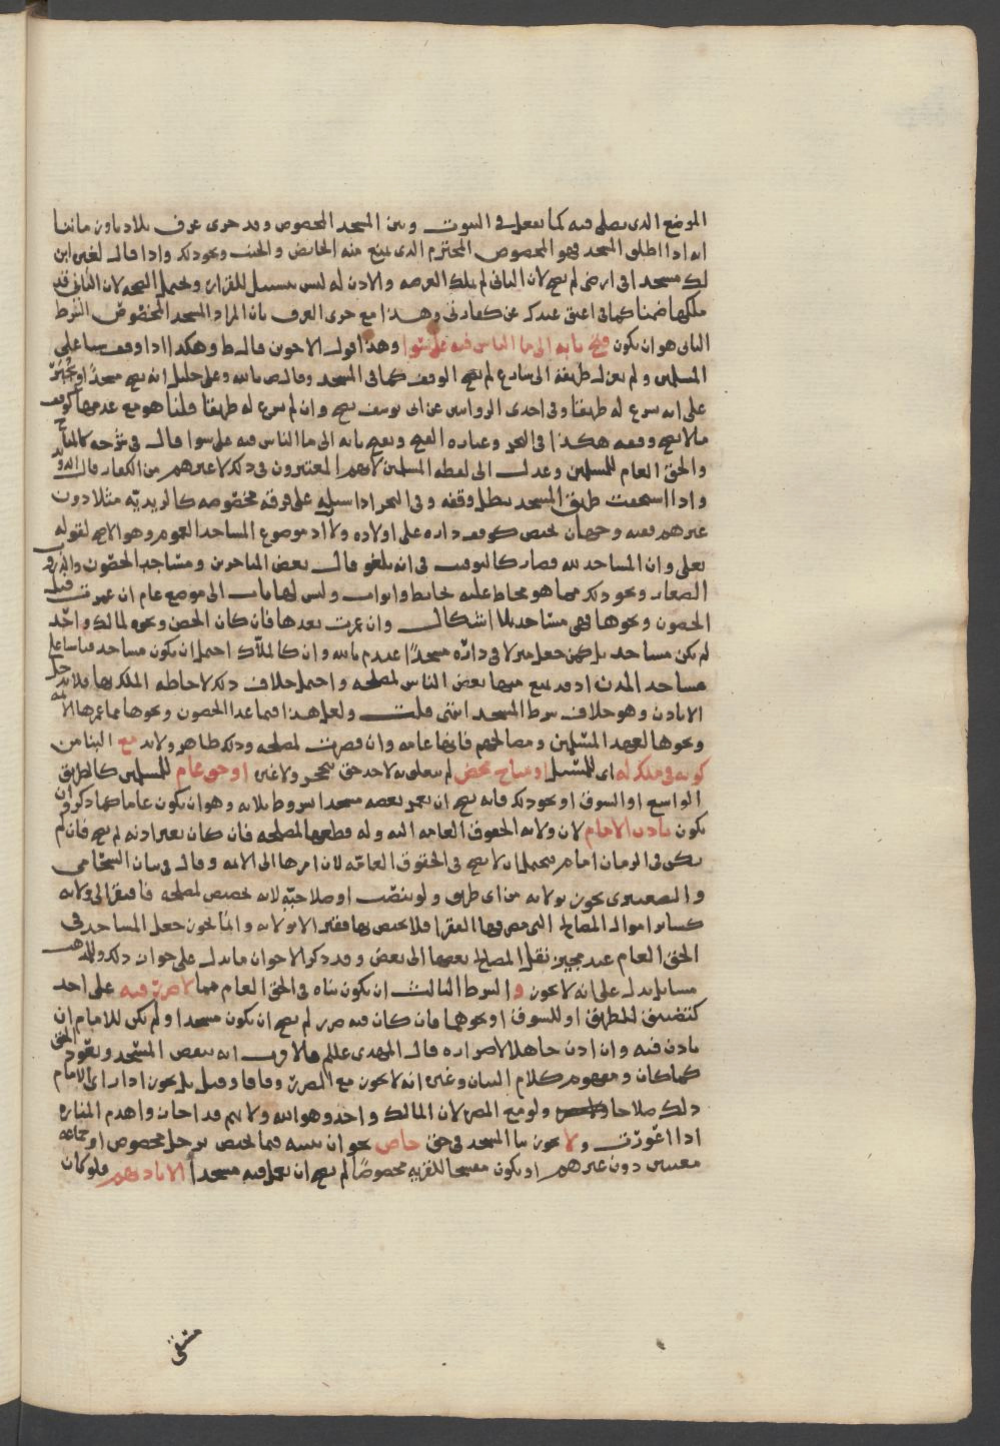 الموضع الذي يصلى فيه كما يفعل في البيوت وبين المسجد المخصوص وقد جرى عرف بلادنا وزماننا
انه اذا اطلق المسجد فهو المخصوص المحترم الذي يمنع منه الحائض والجنب ونحو ذلك واذا قال لغيره ابن
لك مسجدا في ارضي لم يصح لان الباني لم يملك العرصه والاذن له ليس بسبيل للقرار ويحتمل الصحه لان الباني قد
ملكها ضمنا كما في اعتق عبدك عن كفارتي وهذا مع جرى العرف بان المراد المسجد المخصوص الشرط
الثاني هو ان يكون فتح بابه الى ما الناس فيه على سوا وهذا قول الاخوين قال ط وهكذا اذا وقف بيتا على
المسلمين ولم يعزل طريقه الى شارع لم يصح الوقف كما في المسجد وقال ص بالله وعلي خليل انه يصح مسجدًا ويجبر
على انه يشرع له طريقا وفي احدى الروايتين عن ابي يوسف يصح وان لم يشرع له طريقا قلنا هو مع عدمها كوقف
ما لا يصح وقفه هكذا في البحر وعباره الفتح وبفتح بابه الى ما الناس فيه على سوا قال في شرحه كالمباح
والحق العام للمسلمين وعدل الى لفظه المسلمين لانهم المعتبرون في ذلك لا غيرهم من الكفار قال
واذا استحقت طريق المسجد بطل وقفه وفي البحر اذا سبله على فرقه مخصوصه كالزيديه مثلا دون
غيرهم ففيه وجهان يختص كوقف داره على اولاده ولا اذ موضوع المساجد العموم وهو الاصح لقوله
تعالى وان المساجد لله فصار كالتوقيت في انه يلغو قال بعض المتاخرين ومساجد الحصون والدور
الصغار ونحو ذلك مما هو محاط عليه بحائط وابواب وليس لها باب الى موضع عام ان عمرت قبل
الحصون ونحوها فهي مساجد بلا اشكال وان عمرت بعدها فان كان الحصن ونحوه لمالك واحد
لم يكن مساجد بل كمن جعل منزلا في داره مسجدًا عند م بالله وان كان لملاك احتمل ان يكون مساجد قياسا على
مساجد المدن اذ قد يمنع منها بعض الناس لمصلحه واحتمل خلاف ذلك لاحاطه الملك بها فلا تدخل
الا باذن وهو خلاف شرط المسجد انتهى قلت ولعل هذا فيما عدا الحصون ونحوها مما عمرها الائمه
ونحوها لعهد المسلمين ومصالحهم فانها عامه وان قصرت لمصلحه وذلك ظاهر ولا بد مع البنا من
كونه في ملك له اي للمسبل او مباح محض لم يتعلق به لاحد حق تحجر ولا غيره او حق عام للمسلمين كالطريق
الواسع او السوق او نحو ذلك فانه يصح ان يعمر بعضه مسجدا بشروط ثلاثه وهو ان يكون عاما كما ذكر وان
يكون باذن الامام لان ولايه الحقوق العامه اليه وله قطعها لمصلحه فان كان بغير اذنه لم يصح فان لم
يكن في الزمان امام فيحتمل ان لا يصح في الحقوق العامه لان امرها الى الائمه وقال في بيان السحامي
والصعيتري يجوز بولايه من اي طريق ولو بنصب او صلاحيه لانه تخصيص لمصلحه فافتقر الى ولايه
كسائر اموال المصالح التي مصرفها الفقرا فلا يختص بها فقير الا بولايه وانما يجوز جعل المساجد في
الحق العام عند مجيز نقل المصالح بعضها الى بعض وقد ذكر الاخوان ما يدل على جواز ذلك وللمذهب
مسائل تدل على انه لا يجوز و الشرط الثالث ان يكون بناه في الحق العام مما لا ضرر فيه على احد
كتضييق للطريق او للسوق او نحوهما فان كان فيه ضرر لم يصح ان يكون مسجدا ولم يكن للامام ان
ياذن فيه وان اذن جاهلا لاضراره قال المهدي عليلم فالاقرب انه ينقض المسجد ويعود الحق
كما كان ومفهوم كلام البيان وغيره انه لا يجوز مع الضرر وفاقا وقيل بل يجوز اذا راى الامام
ذلك صلاحا ولو مع الضرر لان المالك واحد وهو الله ولانهم قد اجازوا هدم المناره
اذا اعورت ولا يجوز بنا المسجد في حق خاص نحو ان يبنيه فيما يختص برجل مخصوص او جماعه
معينين دون غيرهم او يكون مفسحا لقريه مخصوصه لم يصح ان يعمل فيه مسجدًا الا باذنهم فلو كان